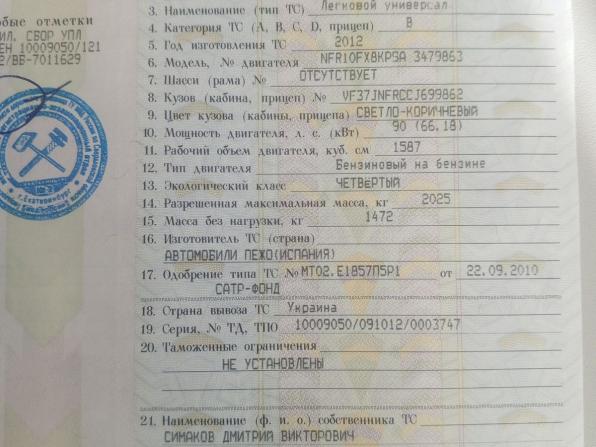 обые отметки
ИЛ. СБОР УПЛ
ЕН 10009050/121
2/ВБ-7011629
г.Екатеринбург
3. Наименование (тип ТС) Легковой универсал
4. Категория ТС (A, B, C, D, прицеп) B
5. Год изготовления ТС 2012
6. Модель, № двигателя NFR10FX8KPSA 3479863
7. Шасси (рама) № ОТСУТСТВУЕТ
8. Кузов (кабина, прицеп) № VF37JNFRCCJ699862
9. Цвет кузова (кабины, прицепа) СВЕТЛО-КОРИЧНЕВЫЙ
10. Мощность двигателя, л. с. (кВт) 90 (66.18)
11. Рабочий объем двигателя, куб. см 1587
12. Тип двигателя Бензиновый на бензине
13. Экологический класс ЧЕТВЁРТЫЙ
14. Разрешенная максимальная масса, кг 2025
15. Масса без нагрузки, кг 1472
16. Изготовитель ТС (страна)
АВТОМОБИЛИ ПЕЖО(ИСПАНИЯ)
17. Одобрение типа ТС № МТ02.Е1857П5Р1 от 22.09.2010
САТР-ФОНД
18. Страна вывоза ТС Украина
19. Серия, № ТД, ТПО 10009050/091012/0003747
20. Таможенные ограничения
НЕ УСТАНОВЛЕНЫ
21. Наименование (ф. и. о.) собственника ТС
СИМАКОВ ДМИТРИЙ ВИКТОРОВИЧ